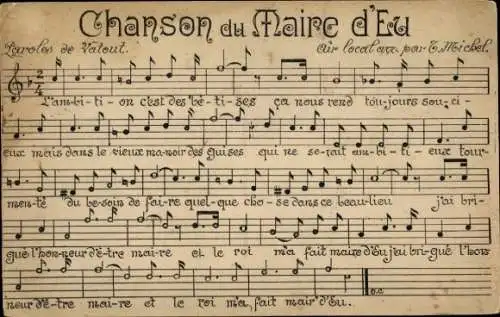 Chanson du Maire d'Eu
Paroles de Vatout. Air local arr. par T. Michel.
L'am-bi-ti-on c'est des bê-ti-ses ça nous rend tou-jours sou-ci-
eux mais dans le vieux ma-noir des guises qui ne se-rait am-bi-ti-eux tour-
men-té du be-soin de fai-re quel-que cho-se dans ce beau lieu j'ai bri-
gué l'hon-neur d'ê-tre mai-re et le roi m'a fait maire d'Eu j'ai bri-gué l'hon-
neur d'ê-tre mai-re et le roi m'a fait mair' d'Eu. D.C.